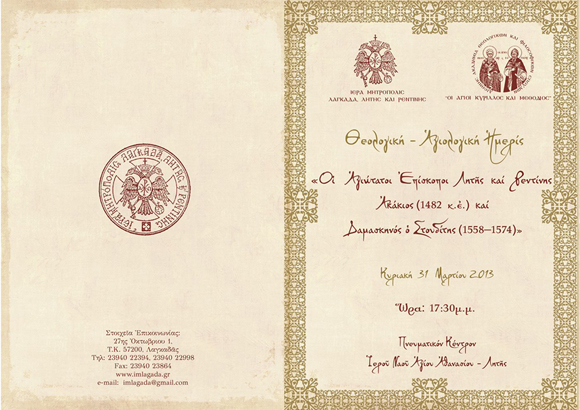 ΙΕΡΑ ΜΗΤΡΟΠΟΛΙΣ ΛΑΓΚΑΔΑ, ΛΗΤΗΣ & ΡΕΝΤΙΝΗΣ
Στοιχεῖα Ἐπικοινωνίας:
27ης Ὀκτωβρίου 1,
Τ.Κ. 57200, Λαγκαδᾶς
Τηλ: 23940 22394, 23940 22998
Fax: 23940 23864
www.imlagada.gr
e-mail: imlagada@gmail.com
ΙΕΡΑ ΜΗΤΡΟΠΟΛΙΣ
ΛΑΓΚΑΔΑ, ΛΗΤΗΣ ΚΑΙ ΡΕΝΤΙΝΗΣ
"ΟΙ ΑΓΙΟΙ ΚΥΡΙΛΛΟΣ ΚΑΙ ΜΕΘΟΔΙΟΣ"
Θεολογική - Ἁγιολογική Ἡμερίς
«Οἱ Ἁγιώτατοι Ἐπίσκοποι Λητῆς καί Ρεντίνης
Ἀκάκιος (1482 κ.ἑ.) καί
Δαμασκηνός ὁ Στουδίτης (1558–1574)»
Κυριακή 31 Μαρτίου 2013
Ὥρα: 17:30μ.μ.
Πνευματικόν Κέντρον
Ἱεροῦ Ναοῦ Ἁγίου Ἀθανασίου - Λητῆς